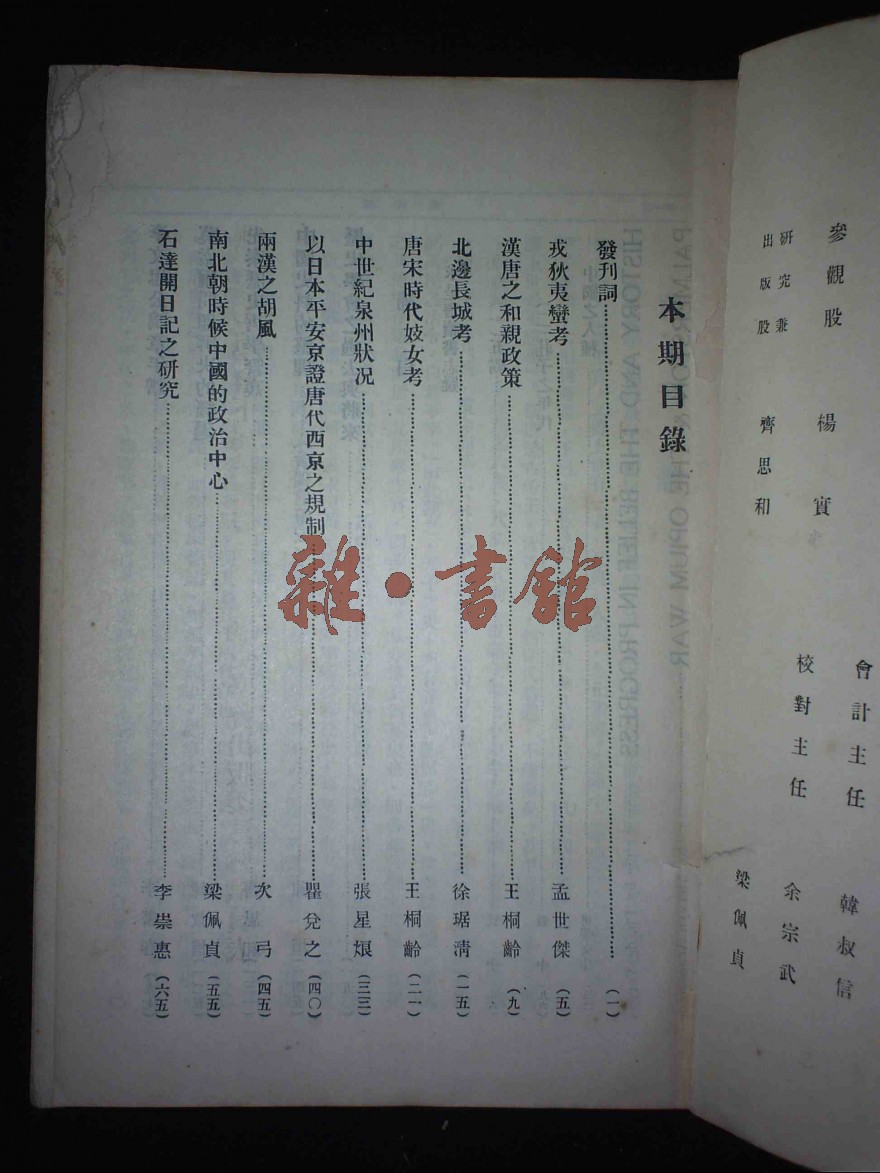 會計主任 韓叔信
參觀股 楊實
校對主任 余宗武
研究兼
出版股 齊思和
梁佩貞
本期目錄
發刊詞(一)
戎狄夷蠻考 孟世傑(五)
漢唐之和親政策 王桐齡(九)
北邊長城考 徐琚清(一五)
唐宋時代妓女考 王桐齡(二一)
中世紀泉州狀况 張星烺(三三)
以日本平安京證唐代西京之規制 瞿兌之(四〇)
兩漢之胡風 次弓(四五)
南北朝時候中國的政治中心 梁佩貞(五五)
石達開日記之研究 李崇惠(六五)
雜·書館
HISTORY AND THE BELIEF IN PROGRESS